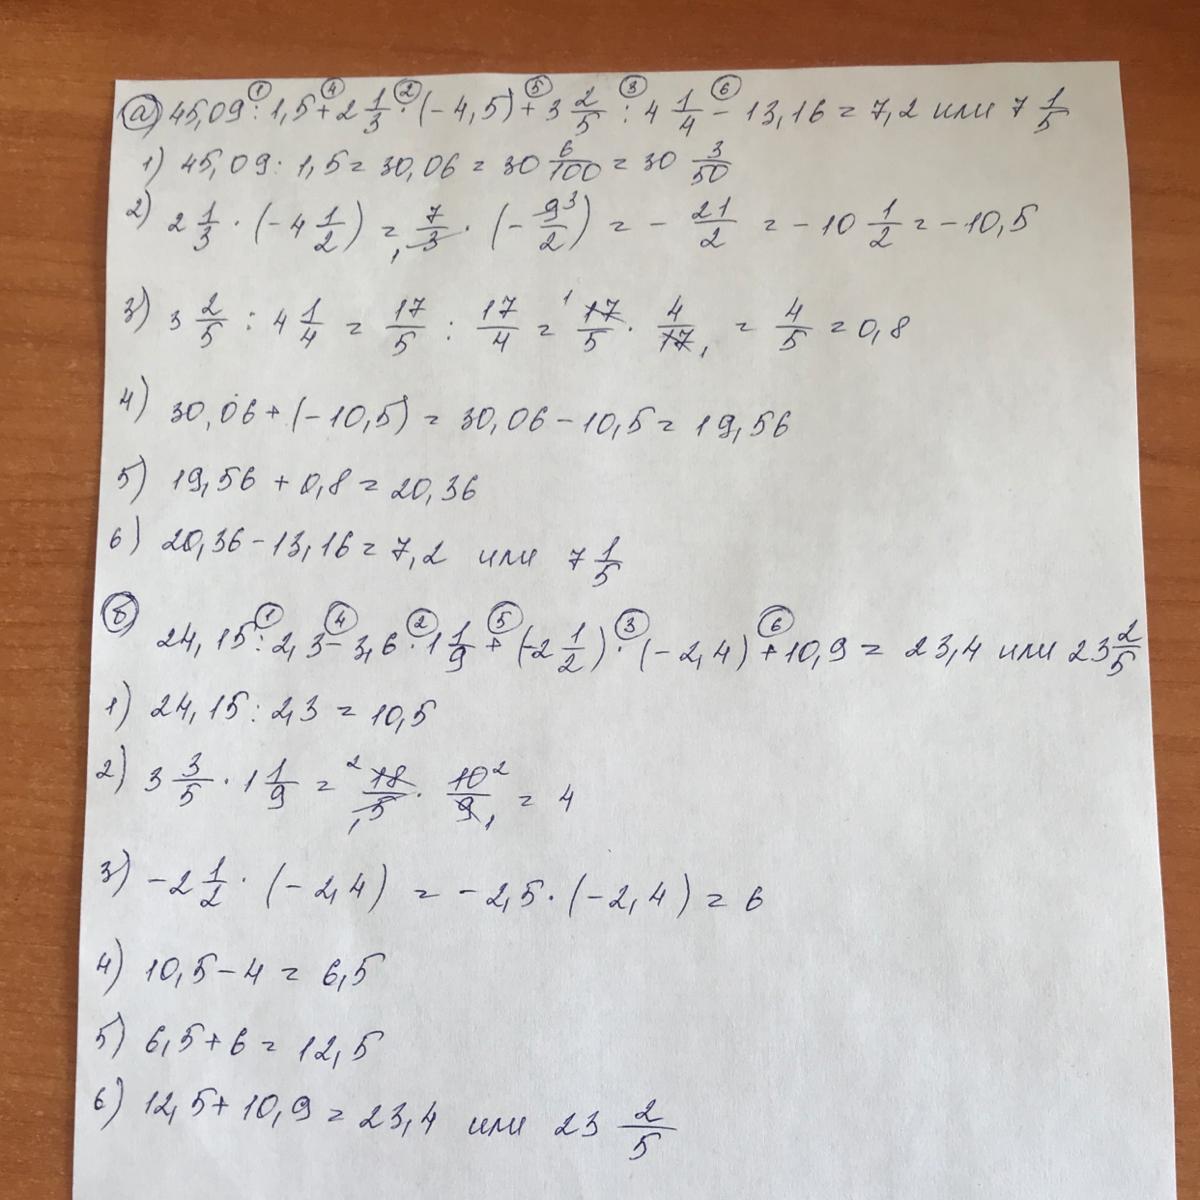 а) 45,09 : 1,5 + 2 1/3 · (-4,5) + 3 2/5 : 4 1/4 - 13,16 = 7,2 или 7 1/5
1) 45,09 : 1,5 = 30,06 = 30 6/100 = 30 3/50
2) 2 1/3 · (-4 1/2) = 7/3 · (-9/2) = - 21/2 = -10 1/2 = -10,5
3) 3 2/5 : 4 1/4 = 17/5 : 17/4 = 17/5 · 4/17 = 4/5 = 0,8
4) 30,06 + (-10,5) = 30,06 - 10,5 = 19,56
5) 19,56 + 0,8 = 20,36
6) 20,36 - 13,16 = 7,2 или 7 1/5
б) 24,15 : 2,3 - 3,6 · 1 1/9 + (-2 1/2) · (-2,4) + 10,9 = 23,4 или 23 2/5
1) 24,15 : 2,3 = 10,5
2) 3 3/5 · 1 1/9 = 18/5 · 10/9 = 4
3) -2 1/2 · (-2,4) = -2,5 · (-2,4) = 6
4) 10,5 - 4 = 6,5
5) 6,5 + 6 = 12,5
6) 12,5 + 10,9 = 23,4 или 23 2/5